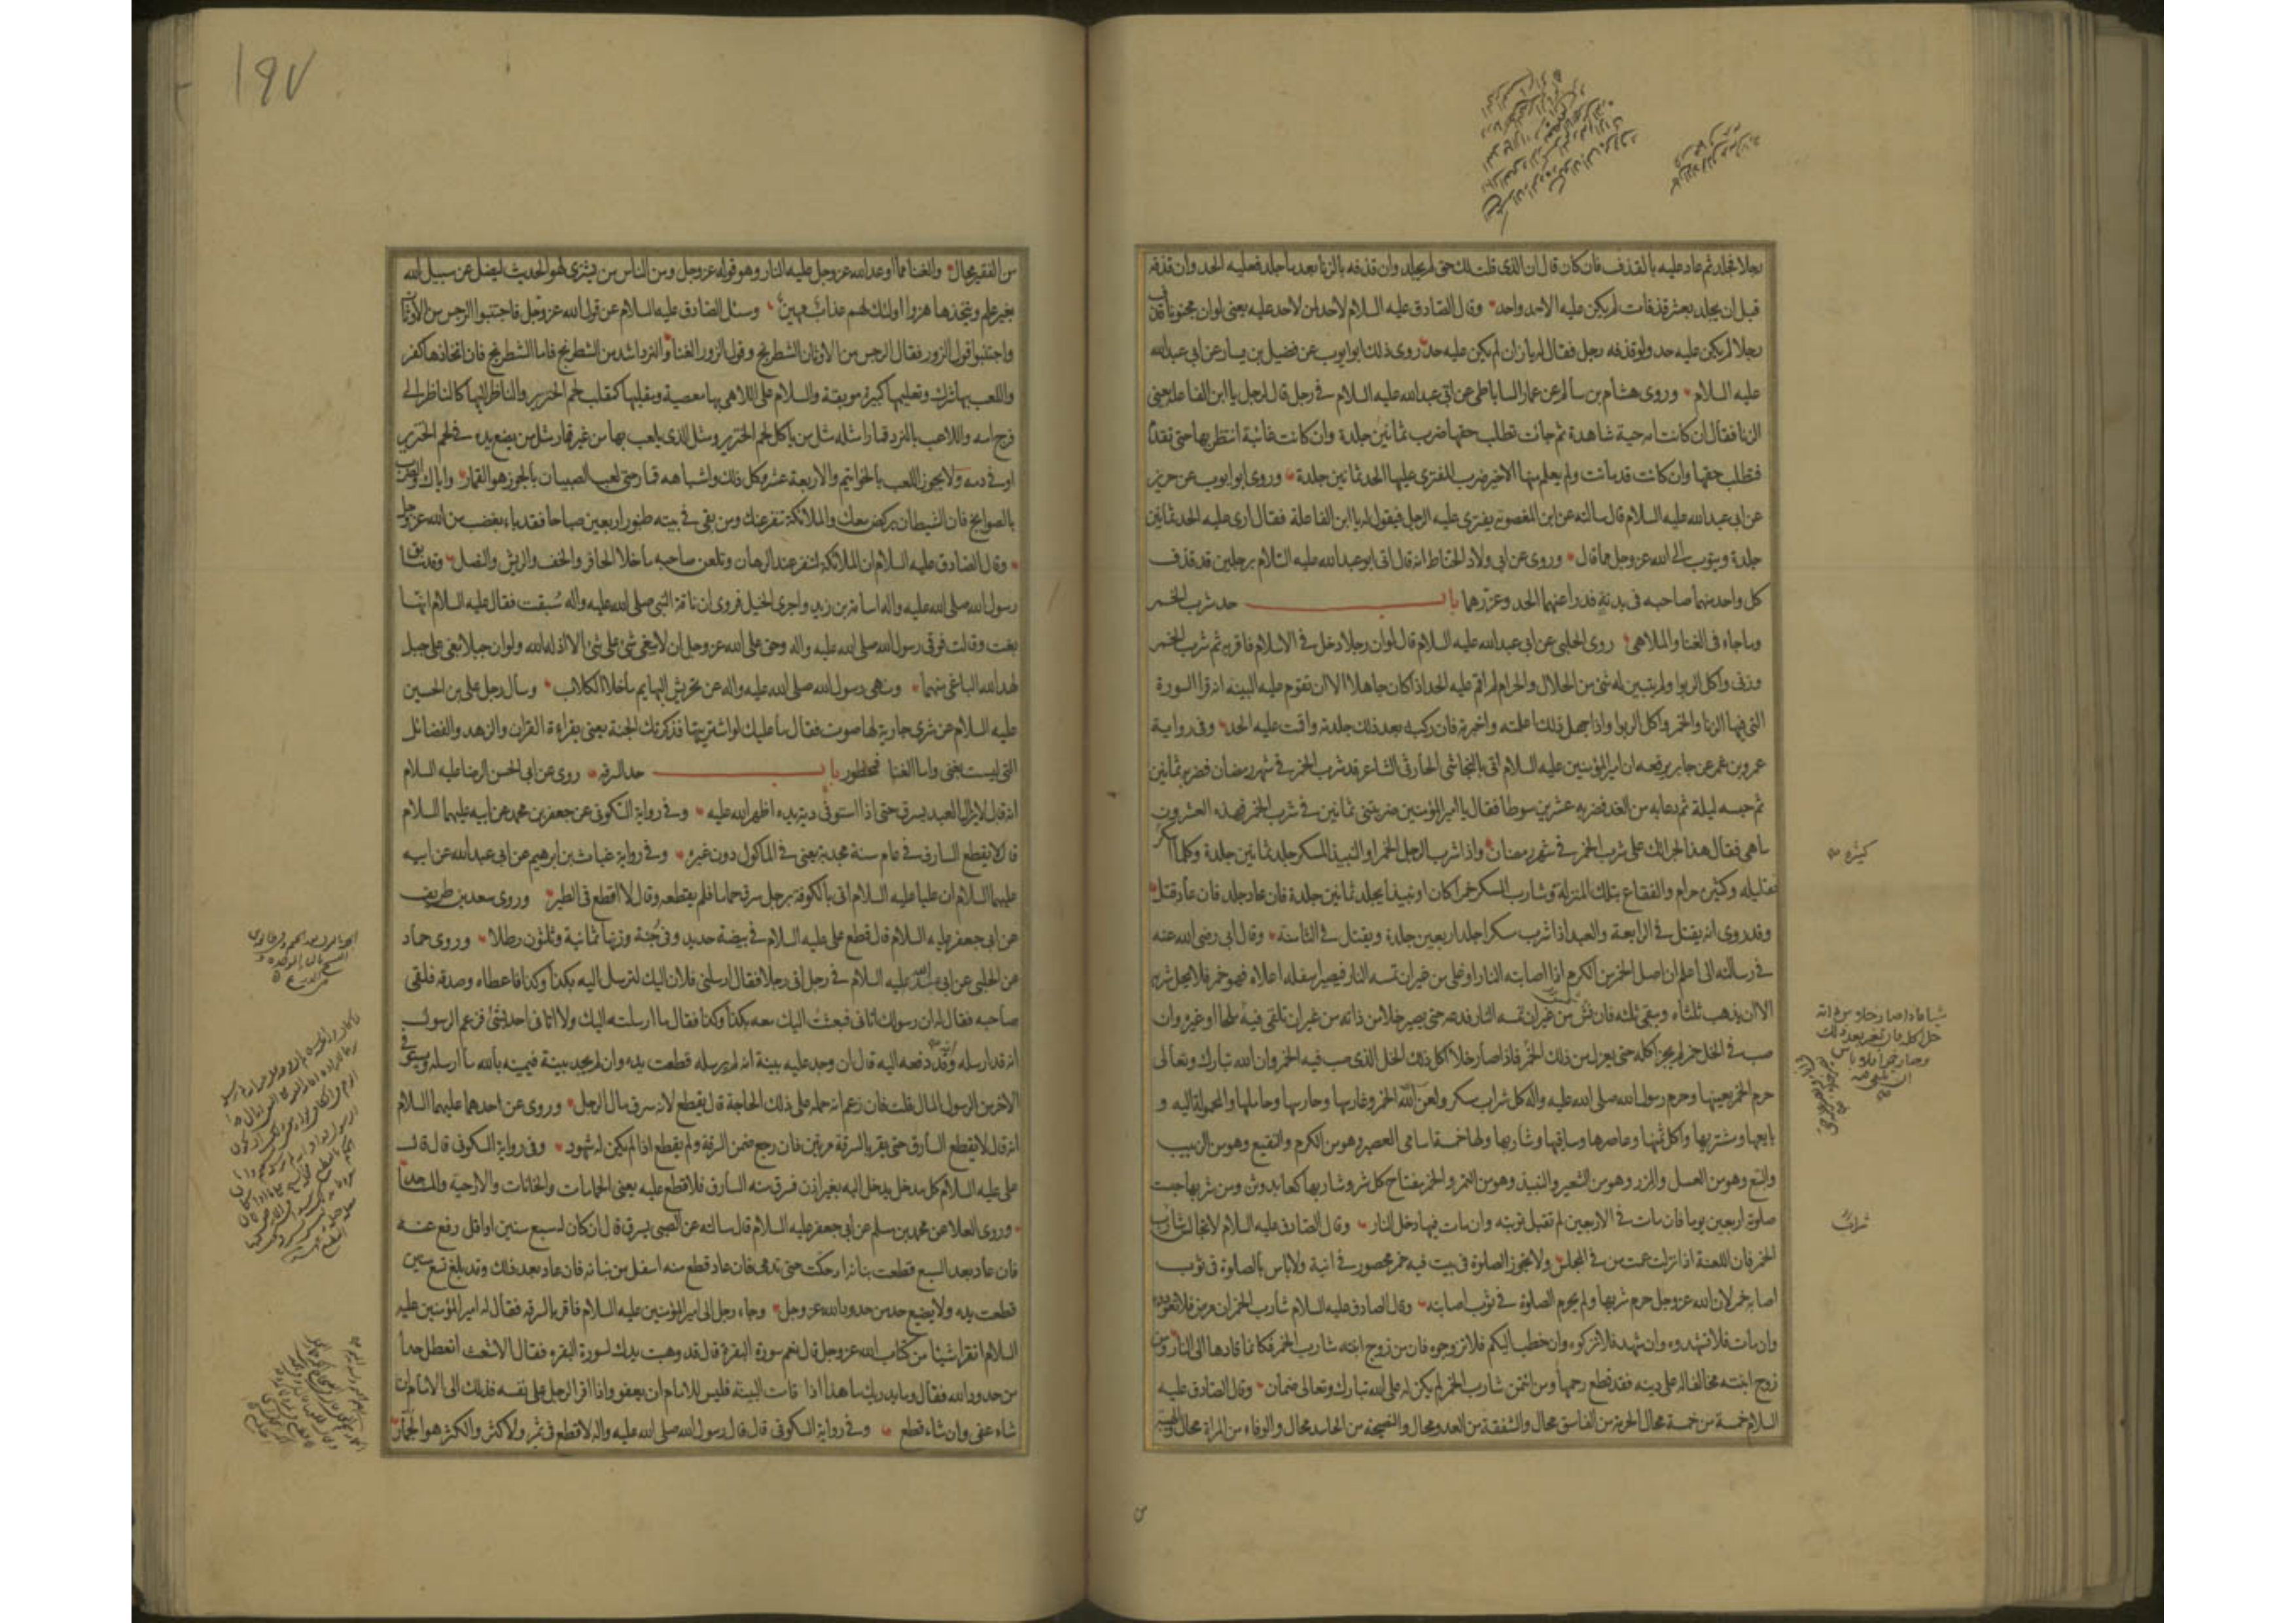 رجلا فجلد ثم عاد عليه بالقذف فان كان قال ان الذى قلت لك حق لم يجلد وان قذفه بالزنا بعد ما جلد فعليه الحد وان قذفه
قبل ان يجلد بعشر قذفات لم يكن عليه الا حد واحد وقال الصادق عليه السلام لاحد لمن لاحد عليه يعنى لوان مجنونا قذف
رجلا لم يكن عليه حد ولو قذفه رجل فقال له يا زان لم يكن عليه حد روى ذلك ابوايوب عن فضيل بن يسار عن ابى عبدالله
عليه السلام وروى هشام بن سالم عن عمار الساباطى عن ابى عبدالله عليه السلام فى رجل قال لرجل يا ابن الفاعلة يعنى
الزنا فقال ان كانت امه حية شاهدة ثم جائت تطلب حقها ضرب ثمانين جلدة وان كانت غائبة انتظر بها حتى تقدم
فتطلب حقها وان كانت قد ماتت ولم يعلم منها الا خير ضرب المفترى عليها الحد ثمانين جلدة وروى ابوايوب عن حريز
عن ابى عبدالله عليه السلام قال سالته عن ابن المغصوبة يفترى عليه الرجل فيقول له يا ابن الفاعلة فقال ارى عليه الحد ثمانين
جلدة ويتوب الى الله عز وجل مما قال وروى عن ابى ولاد الحناط انه قال اتى ابوعبدالله عليه السلام برجلين قد قذف
كل واحد منهما صاحبه فى بدنه فدرا عنهما الحد وعزرهما باب حد شرب الخمر
وما جاء فى الغنا والملاهى روى الحلبى عن ابى عبدالله عليه السلام قال لوان رجلا دخل فى الاسلام فاقر به ثم شرب الخمر
وزنى واكل الربوا ولم يتبين له شئ من الحلال والحرام لم اقم عليه الحد اذا كان جاهلا الا ان تقوم عليه البينه انه قرا السورة
التى فيها الزنا والخمر واكل الربوا واذا جهل ذلك اعلمته واخبرته فان ركبه بعد ذلك جلدته واقمت عليه الحد وفى رواية
عمرو بن شمر عن جابر يرفعه ان امير المؤمنين عليه السلام اتى بالنجاشى الحارثى الشاعر قد شرب الخمر فى شهر رمضان فضربه ثمانين
ثم حبسه ليلة ثم دعا به من الغد فضربه عشرين سوطا فقال يا امير المؤمنين ضربتنى ثمانين فى شرب الخمر فهذه العشرون
ما هى فقال هذا لجرائك على شرب الخمر فى شهر رمضان واذا شرب الرجل الخمر او النبيذ المسكر جلد ثمانين جلدة وكلما اسكر
فقليله وكثيره حرام والفقاع بتلك المنزلة وشارب المسكر خمرا كان او نبيذا يجلد ثمانين جلدة فان عاد جلد فان عاد قتل
وقد روى انه يقتل فى الرابعة والعبد اذا شرب مسكرا جلد اربعين جلدة ويقتل فى الثامنة وقال ابى رضى الله عنه
فى رسالته الى اعلم ان اصل الخمر من الكرم اذا اصابته النار او غلى من غير ان تمسه النار فيصير اسفله اعلاه فهو خمر فلا يحل شربه
الا ان يذهب ثلثاه ويبقى ثلثه فان نش من غير ان تمسه النار فدعه حتى يصير خلا من ذاته من غير ان تلقى فيه ملحا او غيره وان
صب فى الخل خمر لم يجز اكله حتى يعزل من ذلك الخمر فاذا صار خلا اكل ذلك الخل الذى صب فيه الخمر وان الله تبارك وتعالى
حرم الخمر بعينها وحرم رسول الله صلى الله عليه واله كل شراب مسكر ولعن الله الخمر وغارسها وحارسها وحاملها والمحمولة اليه و
بايعها ومشتريها واكل ثمنها وعاصرها وساقيها وشاربها ولها خمسة اسامى العصير وهو من الكرم والنقيع وهو من الزبيب
والبتع وهو من العسل والمزر وهو من الشعير والنبيذ وهو من التمر والخمر مفتاح كل شر وشاربها كعابد وثن ومن شربها حبست
صلوته اربعين يوما فان مات فى الاربعين لم تقبل توبته وان مات فيها دخل النار وقال الصادق عليه السلام لاتجالس شارب
الخمر فان اللعنة اذا نزلت عمت من فى المجلس ولا تجوز الصلوة فى بيت فيه خمر محصور فى انية ولا باس بالصلوة فى ثوب
اصابه خمر لان الله عز وجل حرم شربها ولم يحرم الصلوة فى ثوب اصابته وقال الصادق عليه السلام شارب الخمر ان مرض فلا تعودوه
وان مات فلا تشهدوه وان شهد فلا تزكوه وان خطب اليكم فلا تزوجوه فان من زوج ابنته شارب الخمر فكانما قادها الى النار ومن
زوج ابنته مخالفا له على دينه فقد قطع رحمها ومن ائتمن شارب الخمر لم يكن له على الله تبارك وتعالى ضمان وقال الصادق عليه
السلام خمسة من خمسة محال الحرمة من الفاسق محال والشفقة من العدو محال والنصيحة من الحاسد محال والوفاء من المراة محال والهيبة
كثيره
شيئا فاذا صار خلا من ذاته
حل اكله فان تغير بعد ذلك
وصار خمرا فلا باس
ان تلقى فيه
شراب
من
١٩٧
من الفقير محال والغنا مما اوعد الله عز وجل عليه النار وهو قوله عز وجل ومن الناس من يشترى لهو الحديث ليضل عن سبيل الله
بغير علم ويتخذها هزوا اولئك لهم عذاب مهين وسئل الصادق عليه السلام عن قول الله عز وجل فاجتنبوا الرجس من الاوثان
واجتنبوا قول الزور فقال الرجس من الاوثان الشطرنج وقول الزور الغنا والنرد اشد من الشطرنج فاما الشطرنج فان اتخاذها كفر
واللعب بها شرك وتعليمها كبيرة موبقة والسلام على اللاهى بها معصية ومقلبها كمقلب لحم الخنزير والناظر اليها كالناظر الى
فرج امه واللاعب بالنرد قمارا مثله مثل من ياكل لحم الخنزير ومثل الذى يلعب بها من غير قمار مثل من يضع يده فى لحم الخنزير
او فى دمه ولا يجوز اللعب بالخواتيم والاربعة عشر وكل ذلك واشباهه قمار حتى لعب الصبيان بالجوز هو القمار واياك والضرب
بالصوانج فان الشيطان يركض معك والملائكة تنفر عنك ومن بقى فى بيته طنبور اربعين صباحا فقد باء بغضب من الله عز وجل
وقال الصادق عليه السلام ان الملائكة لتنفر عند الرهان وتلعن صاحبه ما خلا الحافر والخف والريش والنصل وقد سابق
رسول الله صلى الله عليه واله اسامة بن زيد واجرى الخيل فروى ان ناقة النبى صلى الله عليه واله سبقت فقال عليه السلام انها
بغت وقالت فوقى رسول الله صلى الله عليه واله وحق على الله عز وجل ان لا يبغى شئ على شئ الا اذله الله ولوان جبلا بغى على جبل
لهد الله الباغى منهما ونهى رسول الله صلى الله عليه واله عن تحريش البهايم ما خلا الكلاب وسال رجل على بن الحسين
عليه السلام عن شرى جارية لها صوت فقال ما عليك لو اشتريتها فذكرتك الجنة يعنى بقراءة القران والزهد والفضائل
التى ليست بغنى واما الغنا فمحظور باب حد السرقه روى عن ابى الحسن الرضا عليه السلام
انه قال لا يزال العبد يسرق حتى اذا استوفى دية يده اظهر الله عليه وفى رواية السكونى عن جعفر بن محمد عن ابيه عليهما السلام
قال لا يقطع السارق فى عام سنة مجدبة يعنى فى الماكول دون غيره وفى رواية غياث بن ابرهيم عن ابى عبدالله عن ابيه
عليهما السلام ان عليا عليه السلام اتى بالكوفة برجل سرق حماما فلم يقطعه وقال لا اقطع فى الطير وروى سعد بن طريف
عن ابى جعفر عليه السلام قال قطع على عليه السلام فى بيضة حديد وفى جنة وزنها ثمانية وثلثون رطلا وروى حماد
عن الحلبى عن ابى عبدالله عليه السلام فى رجل اتى رجلا فقال ارسلنى فلان اليك لترسل اليه بكذا وكذا فاعطاه وصدقه فلقى
صاحبه فقال له ان رسولك اتانى فبعثت اليك معه بكذا وكذا فقال ما ارسلته اليك ولا اتانى احد بشئ فزعم الرسول
انه قد ارسله وقد دفعه اليه قال ان وجد عليه بينة انه لم يرسله قطعت يده وان لم يجد بينة فيمينه بالله ما ارسله ويستوفى
الاخر من الرسول المال قلت فان زعم انه حمله على ذلك الحاجة قال يقطع لانه سرق مال الرجل وروى عن احدهما عليهما السلام
انه قال لا يقطع السارق حتى يقر بالسرقة مرتين فان رجع ضمن السرقة ولم يقطع اذا لم يكن له شهود وفى رواية السكونى قال قال
على عليه السلام كل مدخل يدخل اليه بغير اذن فسرق منه السارق فلا قطع عليه يعنى الحمامات والخانات والارحية والمساجد
وروى العلا عن محمد بن مسلم عن ابى جعفر عليه السلام قال سالته عن الصبى يسرق قال ان كان له سبع سنين او اقل رفع عنه
فان عاد بعد السبع قطعت بنانه او حكت حتى تدمى فان عاد قطع منه اسفل من بنانه فان عاد بعد ذلك وقد بلغ تسع سنين
قطعت يده ولا يضيع حد من حدود الله عز وجل وجاء رجل الى امير المؤمنين عليه السلام فاقر بالسرقه فقال له امير المؤمنين عليه
السلام اتقرا شيئا من كتاب الله عز وجل قال نعم سورة البقرة قال قد وهبت يدك لسورة البقره فقال الاشعث اتعطل حدا
من حدود الله فقال وما يدريك ما هذا اذا قامت البينه فليس للامام ان يعفو واذا اقر الرجل على نفسه فذلك الى الامام ان
شاء عفى وان شاء قطع وفى رواية السكونى قال قال رسول الله صلى الله عليه واله لا قطع فى ثمر ولا كثر والكثر هو الجمار